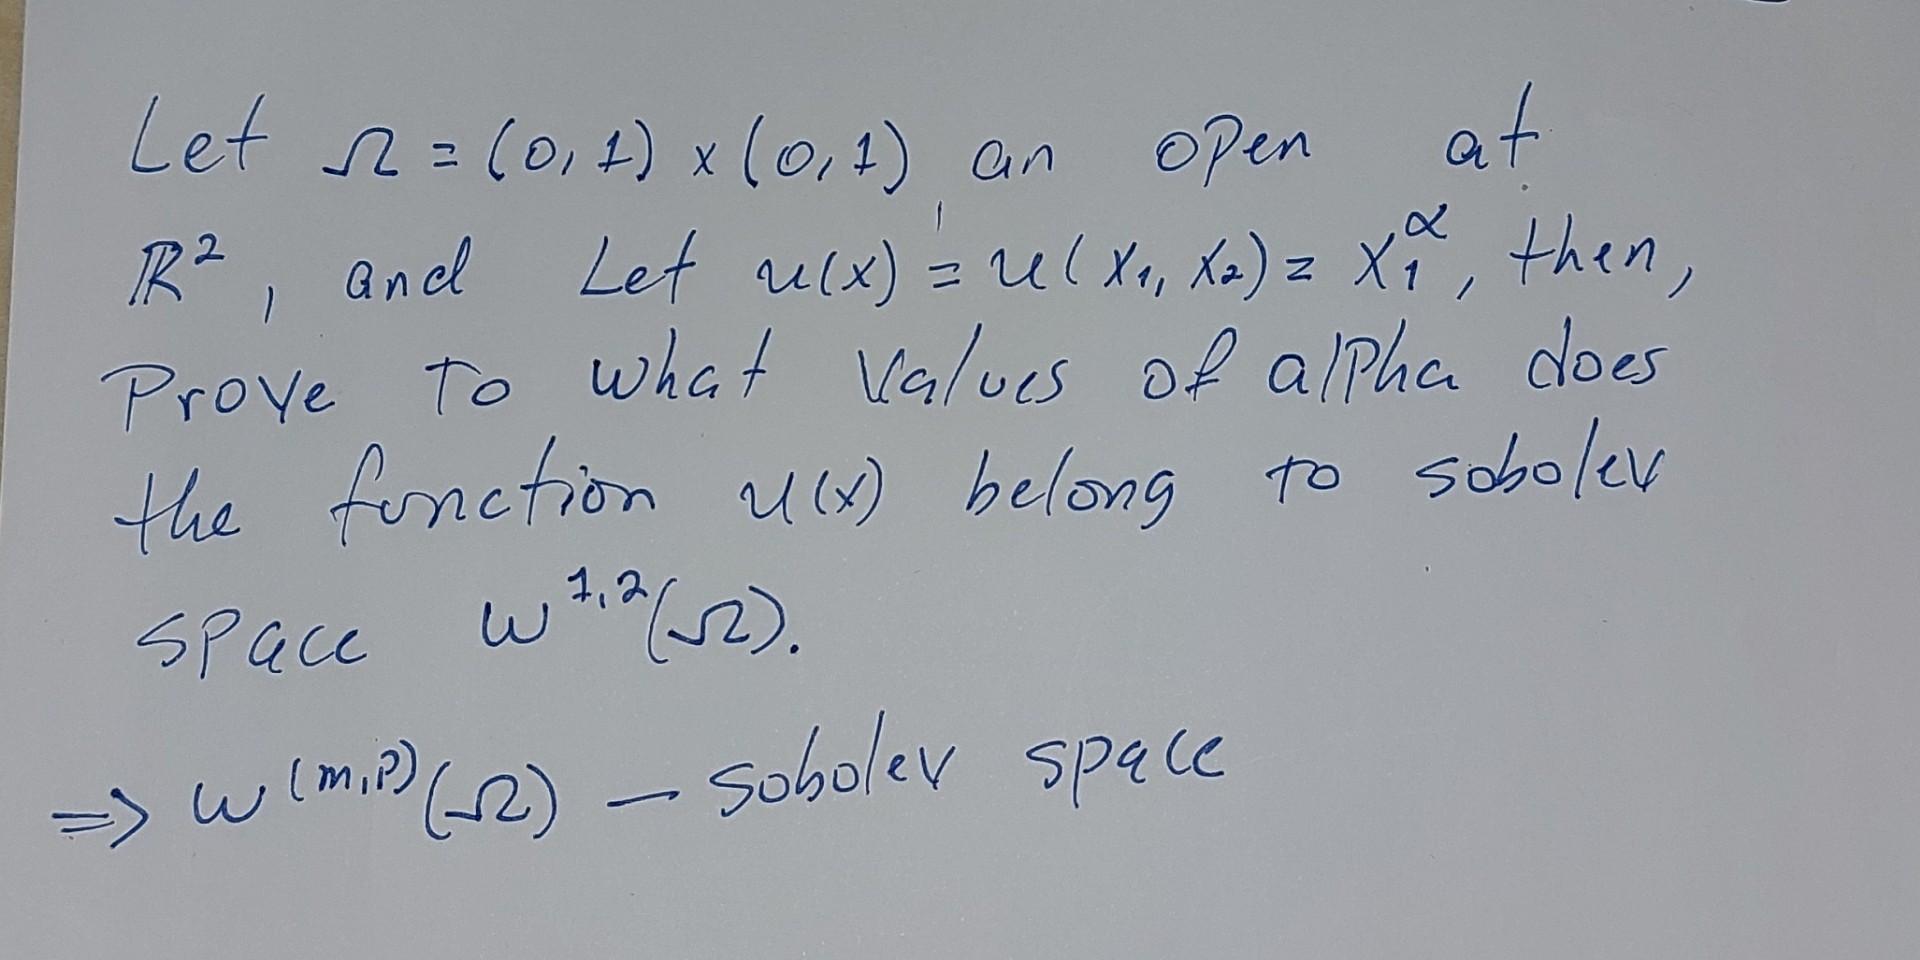 Let Ω = (0,1) x (0,1) an open at
ℝ², and Let u(x) = u(x₁, x₂) = x₁^α, then,
Prove To what values of alpha does
the function u(x) belong to sobolev
space W^1,2(Ω).
⇒ W^(m,p)(Ω) – sobolev space